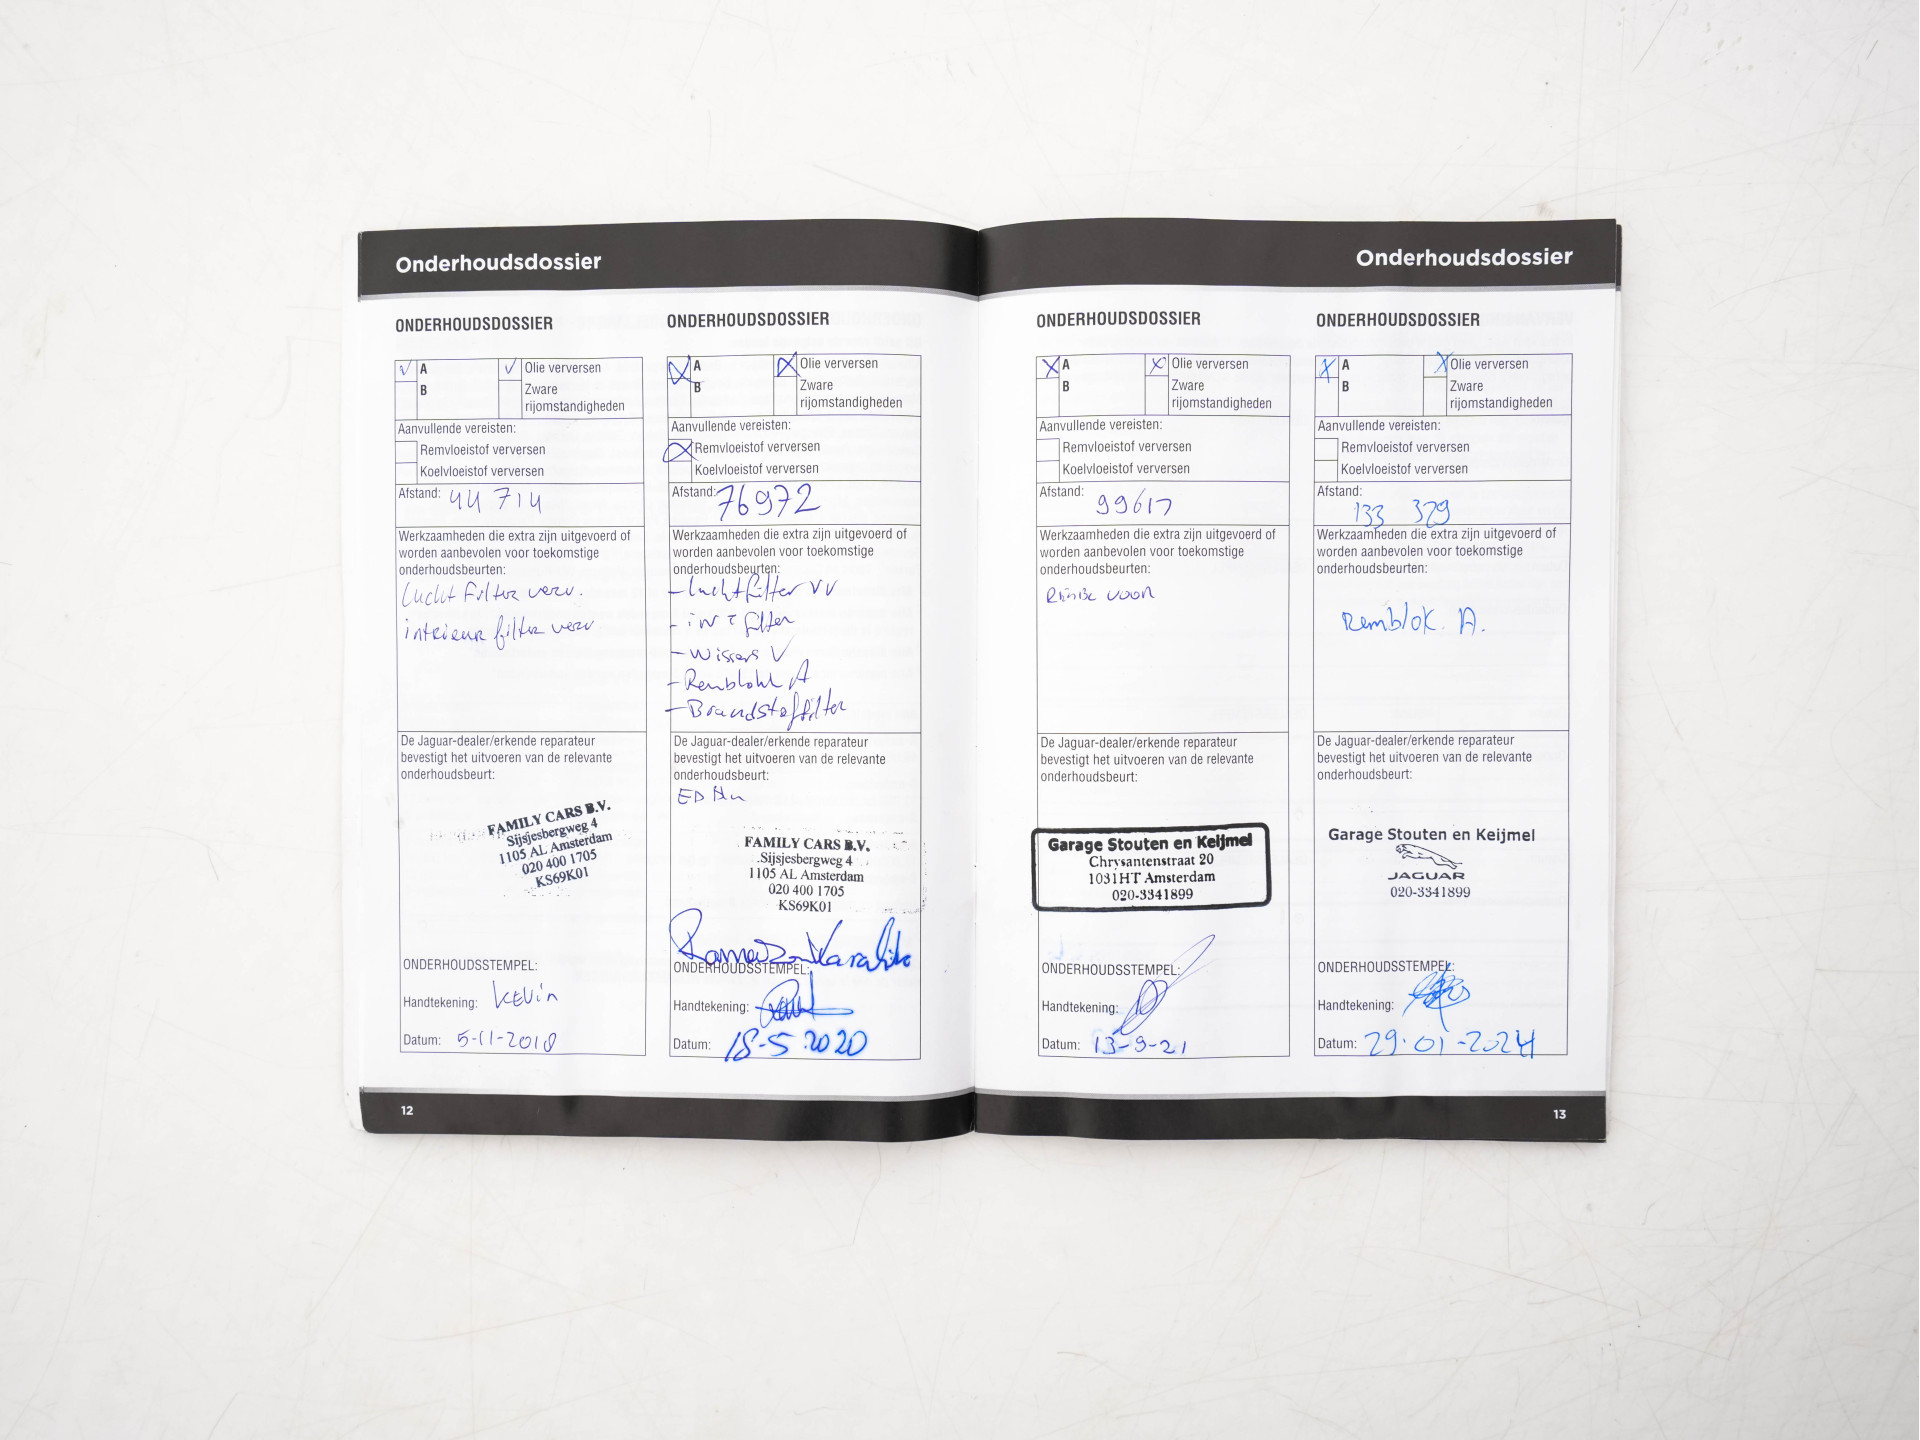 Onderhoudsdossier
ONDERHOUDSDOSSIER
A
Olie verversen
B
Zware
rijomstandigheden
Aanvullende vereisten:
Remvloeistof verversen
Koelvloeistof verversen
Afstand: 44 714
Werkzaamheden die extra zijn uitgevoerd of
worden aanbevolen voor toekomstige
onderhoudsbeurten:
lucht filter verv.
intrieur filter verv
De Jaguar-dealer/erkende reparateur
bevestigt het uitvoeren van de relevante
onderhoudsbeurt:
FAMILY CARS B.V.
Sijsjesbergweg 4
1105 AL Amsterdam
020 400 1705
KS69K01
ONDERHOUDSSTEMPEL:
Handtekening: Kevin
Datum: 5-11-2018
ONDERHOUDSDOSSIER
A
Olie verversen
B
Zware
rijomstandigheden
Aanvullende vereisten:
Remvloeistof verversen
Koelvloeistof verversen
Afstand: 76972
Werkzaamheden die extra zijn uitgevoerd of
worden aanbevolen voor toekomstige
onderhoudsbeurten:
- luchtfilter vv
- int filter
- Wissers V
- Remblokk A
- Brandstoffilter
De Jaguar-dealer/erkende reparateur
bevestigt het uitvoeren van de relevante
onderhoudsbeurt:
FAMILY CARS B.V.
Sijsjesbergweg 4
1105 AL Amsterdam
020 400 1705
KS69K01
ONDERHOUDSSTEMPEL:
Handtekening:
Datum: 18-5 2020
12
Onderhoudsdossier
ONDERHOUDSDOSSIER
A
Olie verversen
B
Zware
rijomstandigheden
Aanvullende vereisten:
Remvloeistof verversen
Koelvloeistof verversen
Afstand: 99617
Werkzaamheden die extra zijn uitgevoerd of
worden aanbevolen voor toekomstige
onderhoudsbeurten:
voor
De Jaguar-dealer/erkende reparateur
bevestigt het uitvoeren van de relevante
onderhoudsbeurt:
Garage Stouten en Keijmel
Chrysantenstraat 20
1031HT Amsterdam
020-3341899
ONDERHOUDSSTEMPEL:
Handtekening:
Datum: 13-9-21
ONDERHOUDSDOSSIER
A
Olie verversen
B
Zware
rijomstandigheden
Aanvullende vereisten:
Remvloeistof verversen
Koelvloeistof verversen
Afstand:
133 329
Werkzaamheden die extra zijn uitgevoerd of
worden aanbevolen voor toekomstige
onderhoudsbeurten:
Remblok. A.
De Jaguar-dealer/erkende reparateur
bevestigt het uitvoeren van de relevante
onderhoudsbeurt:
Garage Stouten en Keijmel
JAGUAR
020-3341899
ONDERHOUDSSTEMPEL:
Handtekening:
Datum: 29-01-2024
13